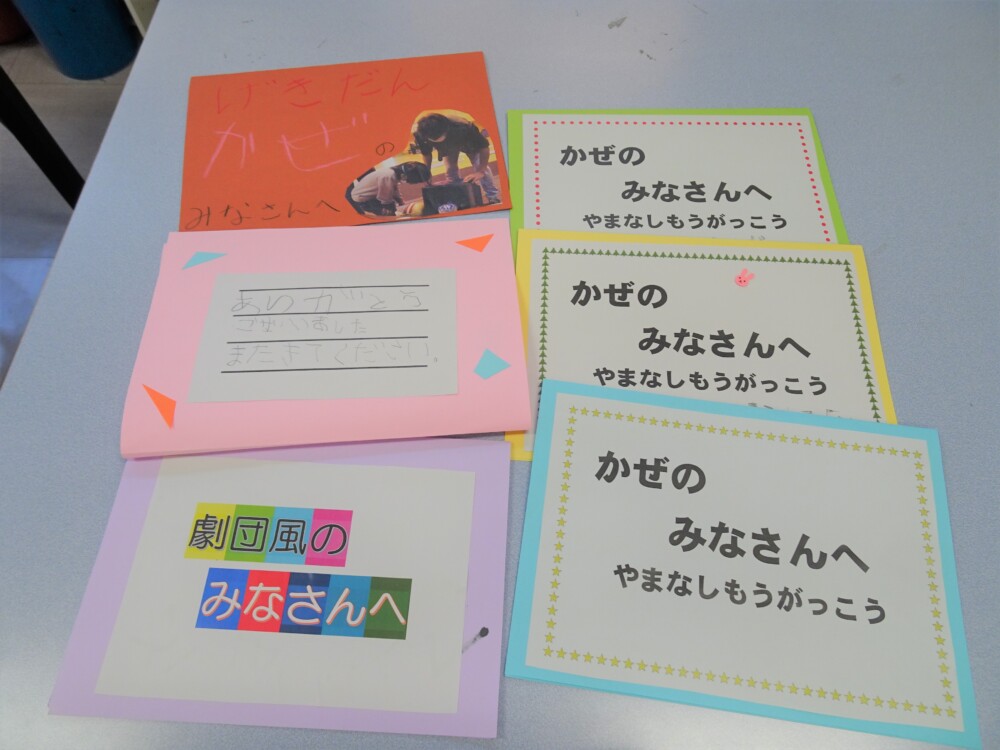 げきだん
かぜの
みなさんへ
ありがとう
ございました
またきてください。
劇団風の
みなさんへ
かぜの
みなさんへ
やまなしもうがっこう
かぜの
みなさんへ
やまなしもうがっこう
かぜの
みなさんへ
やまなしもうがっこう